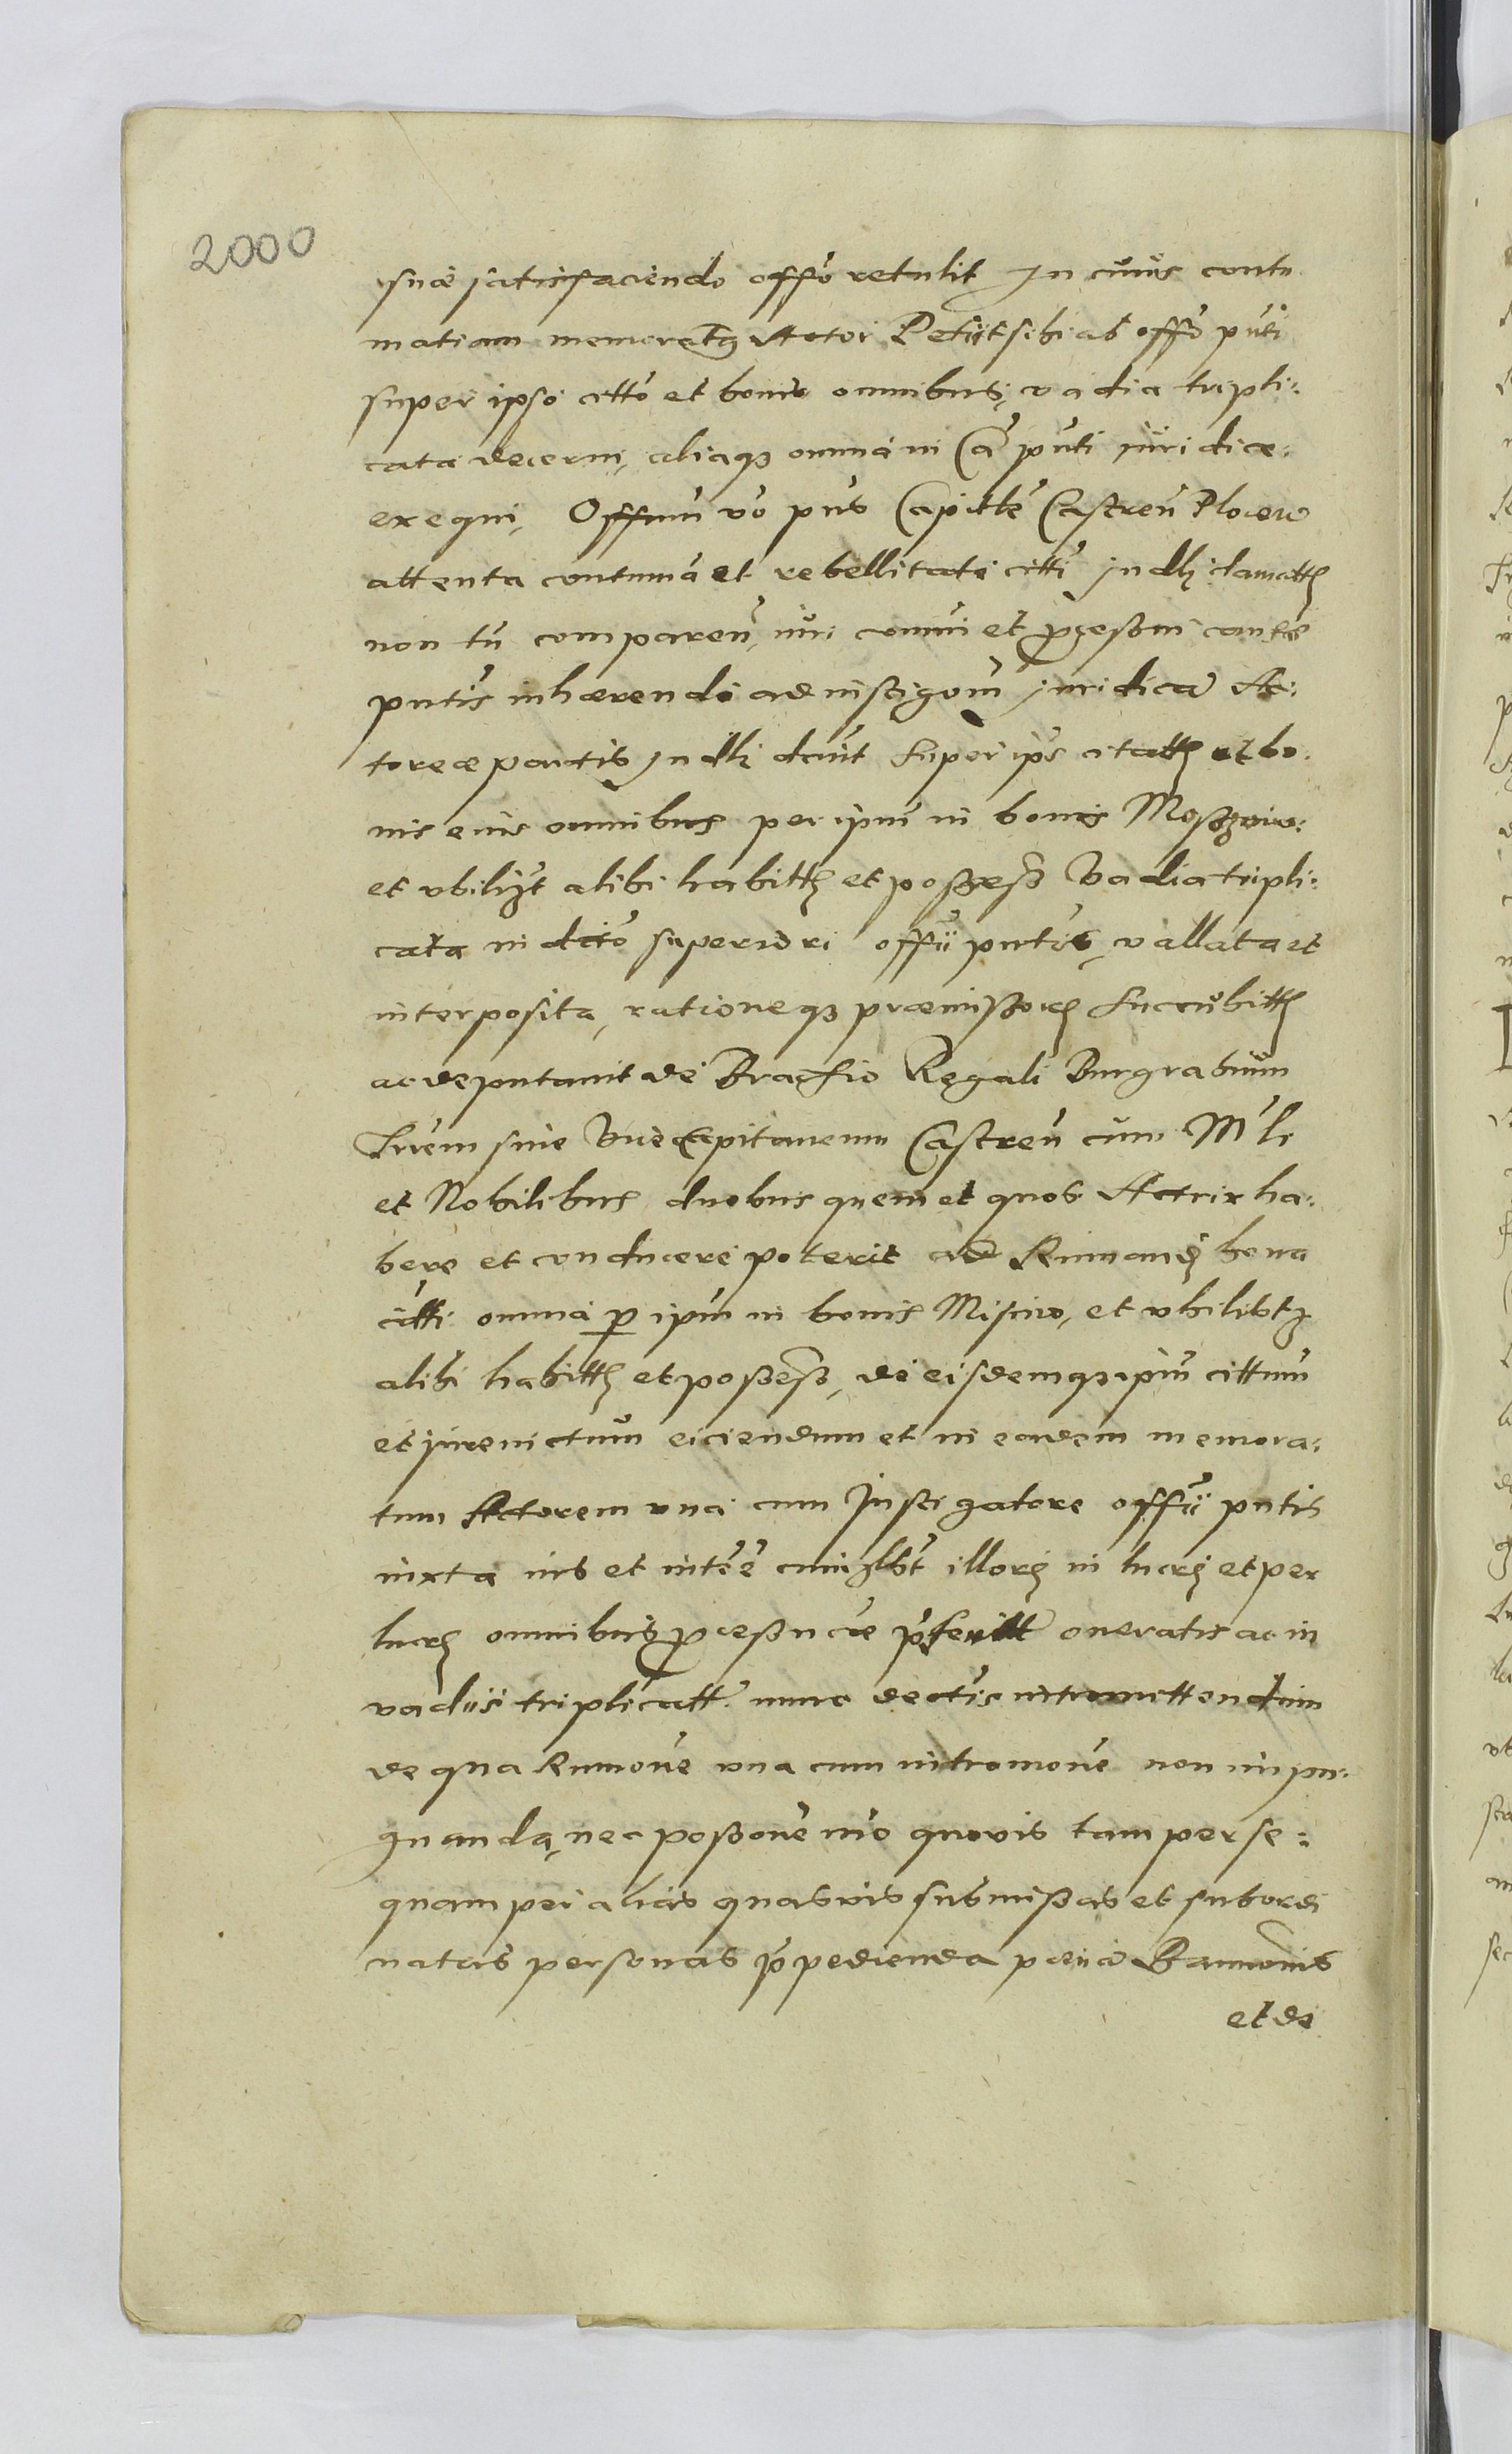 2000
suae satisfaciendo offo retulit In cuius contu
matiam memoratus Actor Petiit sibi ab offo pnti
super ipso citto et bonis omnibus, vadia tripli:
cata decerni, aliaque omnia in Ca pnti iuridice
exequi, Offium vo pns Capitle Castren Plocen
attenta contuma et rebellitate citti in dli clamatt
non tn comparen, iuri comni et processui causae
pntis inhaerendo ad instigonem iuridica Ac:
toreae partis in dli davit super ips citatt et bo
nis eius omnibus per ipm in bonis
et ubilibt alibi habitt et possess Vadia tripli:
cata in dcto superiori offii pntis, vallata et
interposita, rationeque praemissorum
ac deputavit de Brachio Regali Burgrabium
sive Vice Capitaneum Castren cum Mli
et Nobilibus duobus quem et quos Actrix ha:
bere et conducere poterit ad bona
citti omnia per ipm in bonis et ubilibtque
alibi habitt et possess, de eisdemque ipm cittum
et iurevictum eiciendum et in eandem memora:
tum Actorem una cum Instigatore offii pntis
iuxta ius et intere cuiuslbt illorum in lucris et per
lucra omnibus processu cae oneratis ac in
vadiis triplicatt. nunc dectis intromittendum
de qua una cum intromone non impu:
gnanda, nec possone mo quovis tam per se:
quam per alias quasvis submissas et subordi
natas personas praepedienda poena Bannionis
et de